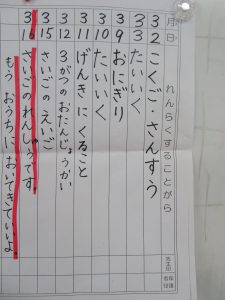 月日 れんらくすることがら
3 2 こくご・さんすう
3 3 たいいく
3 9 おにぎり
3 10 たいいく
3 11 げんきにくること
3 12 3がつのおたんじょうかい
3 15 さいごのえいご
3 16 さいごのれんしゅうです。
もうおうちにおいてきていいよ